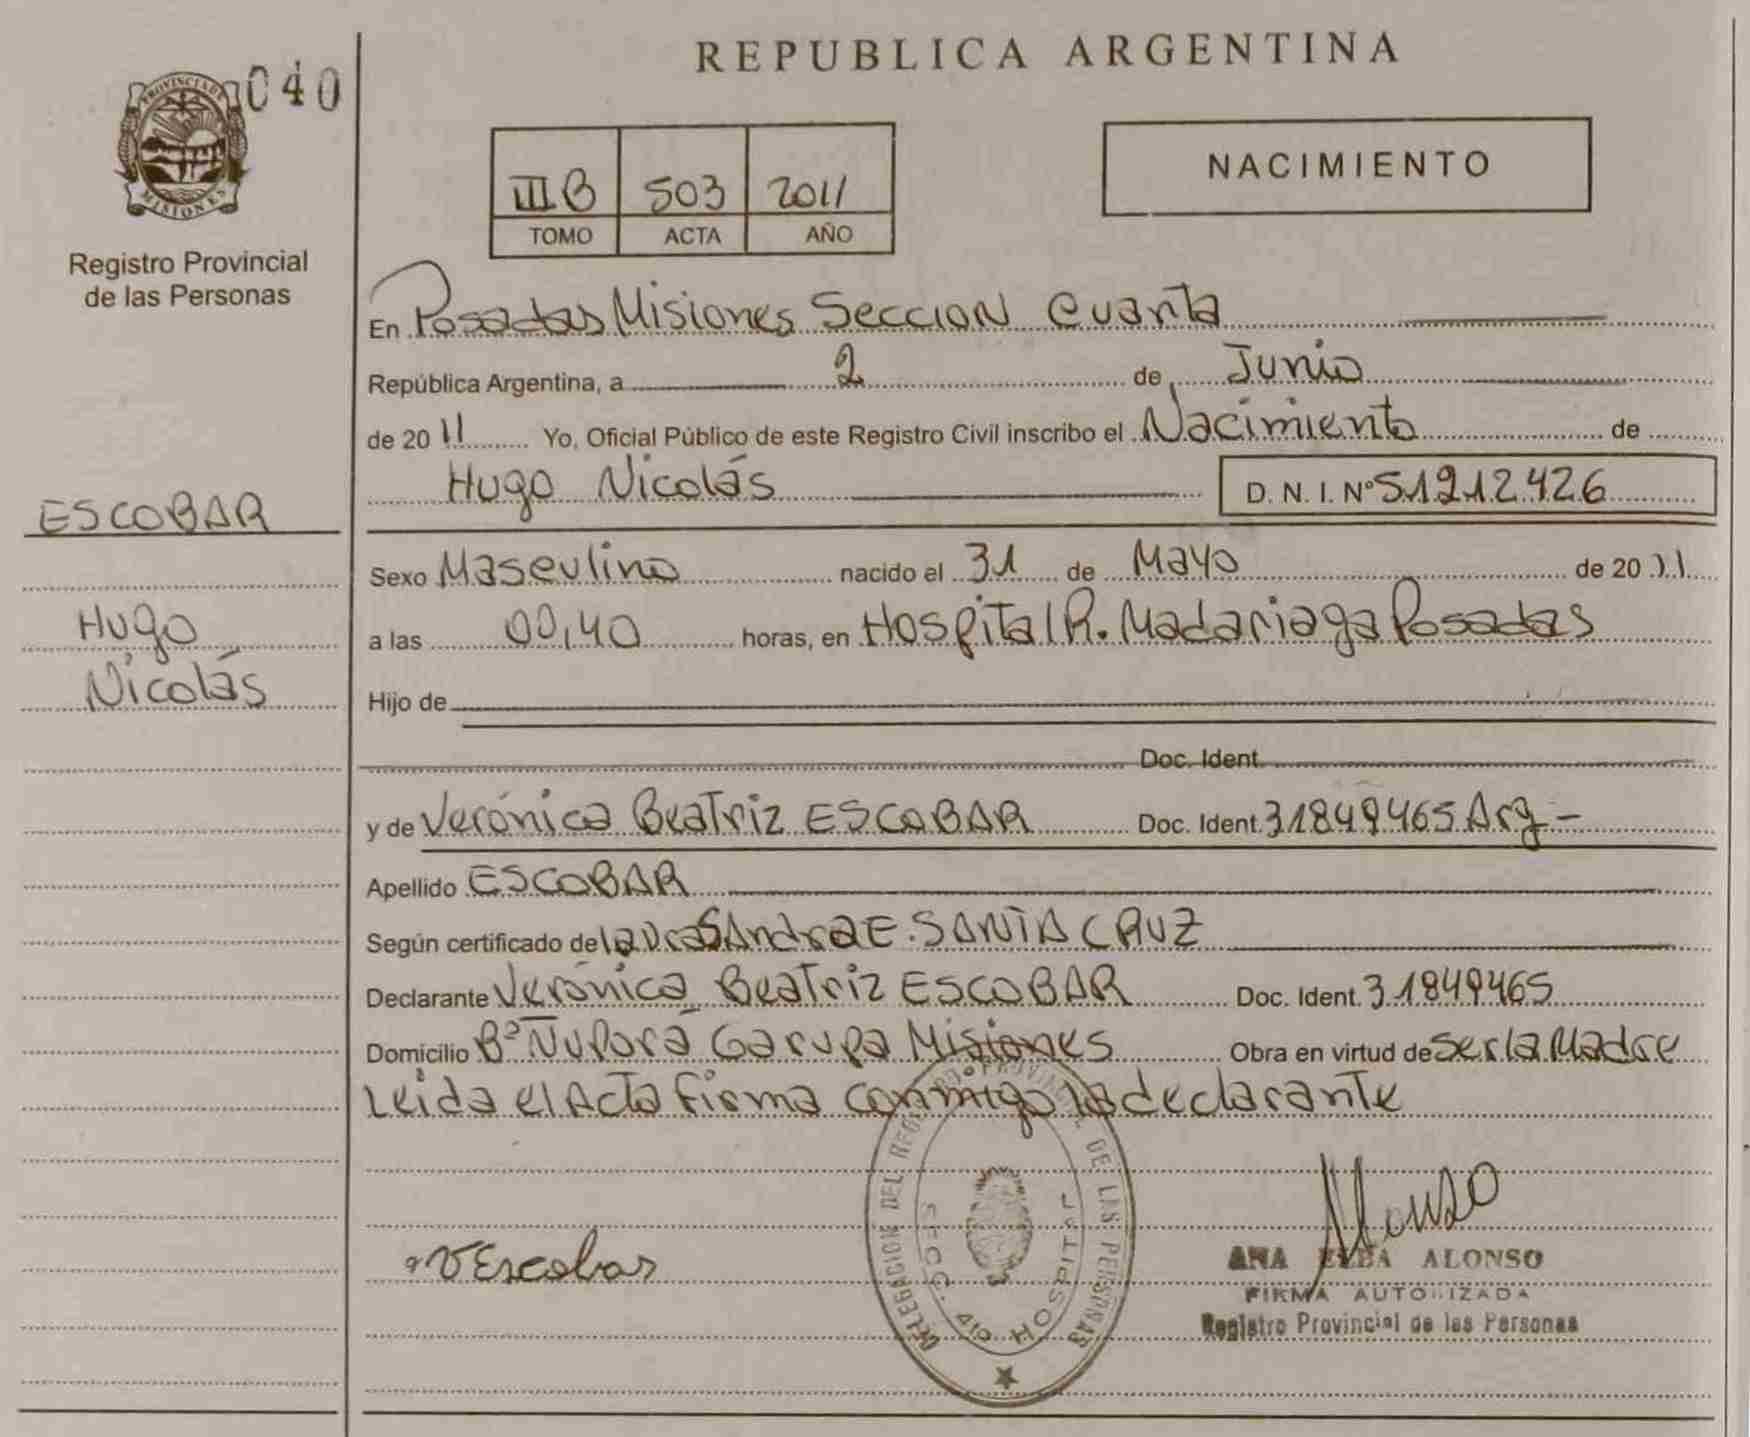 REPUBLICA ARGENTINA
040
PROVINCIA DE MISIONES
Registro Provincial
de las Personas
III B 503 2011
TOMO ACTA AÑO
NACIMIENTO
En Posadas Misiones Seccion Cuarta
República Argentina, a 2 de Junio
de 2011 Yo, Oficial Público de este Registro Civil inscribo el Nacimiento de
Hugo Nicolás D. N. I. Nº 51212426
ESCOBAR
Hugo
Nicolás
Sexo Masculino nacido el 31 de Mayo de 2011
a las 00,40 horas, en Hospital R. Madariaga Posadas
Hijo de
Doc. Ident.
y de Verónica Beatriz ESCOBAR Doc. Ident. 31849465 Arg-
Apellido ESCOBAR
Según certificado de la Dra Sandra E. SANTA CRUZ
Declarante Verónica Beatriz ESCOBAR Doc. Ident. 31849465
Domicilio Bº Ñu Porá Garupa Misiones Obra en virtud de ser la Madre
Leida el Acta firma conmigo la declarante
DELEGACION DEL REGISTRO PROVINCIAL DE LAS PERSONAS
SECC. 4ta HOSPITAL
VEscobar
Alonso
ANA ELBA ALONSO
FIRMA AUTORIZADA
Registro Provincial de las Personas